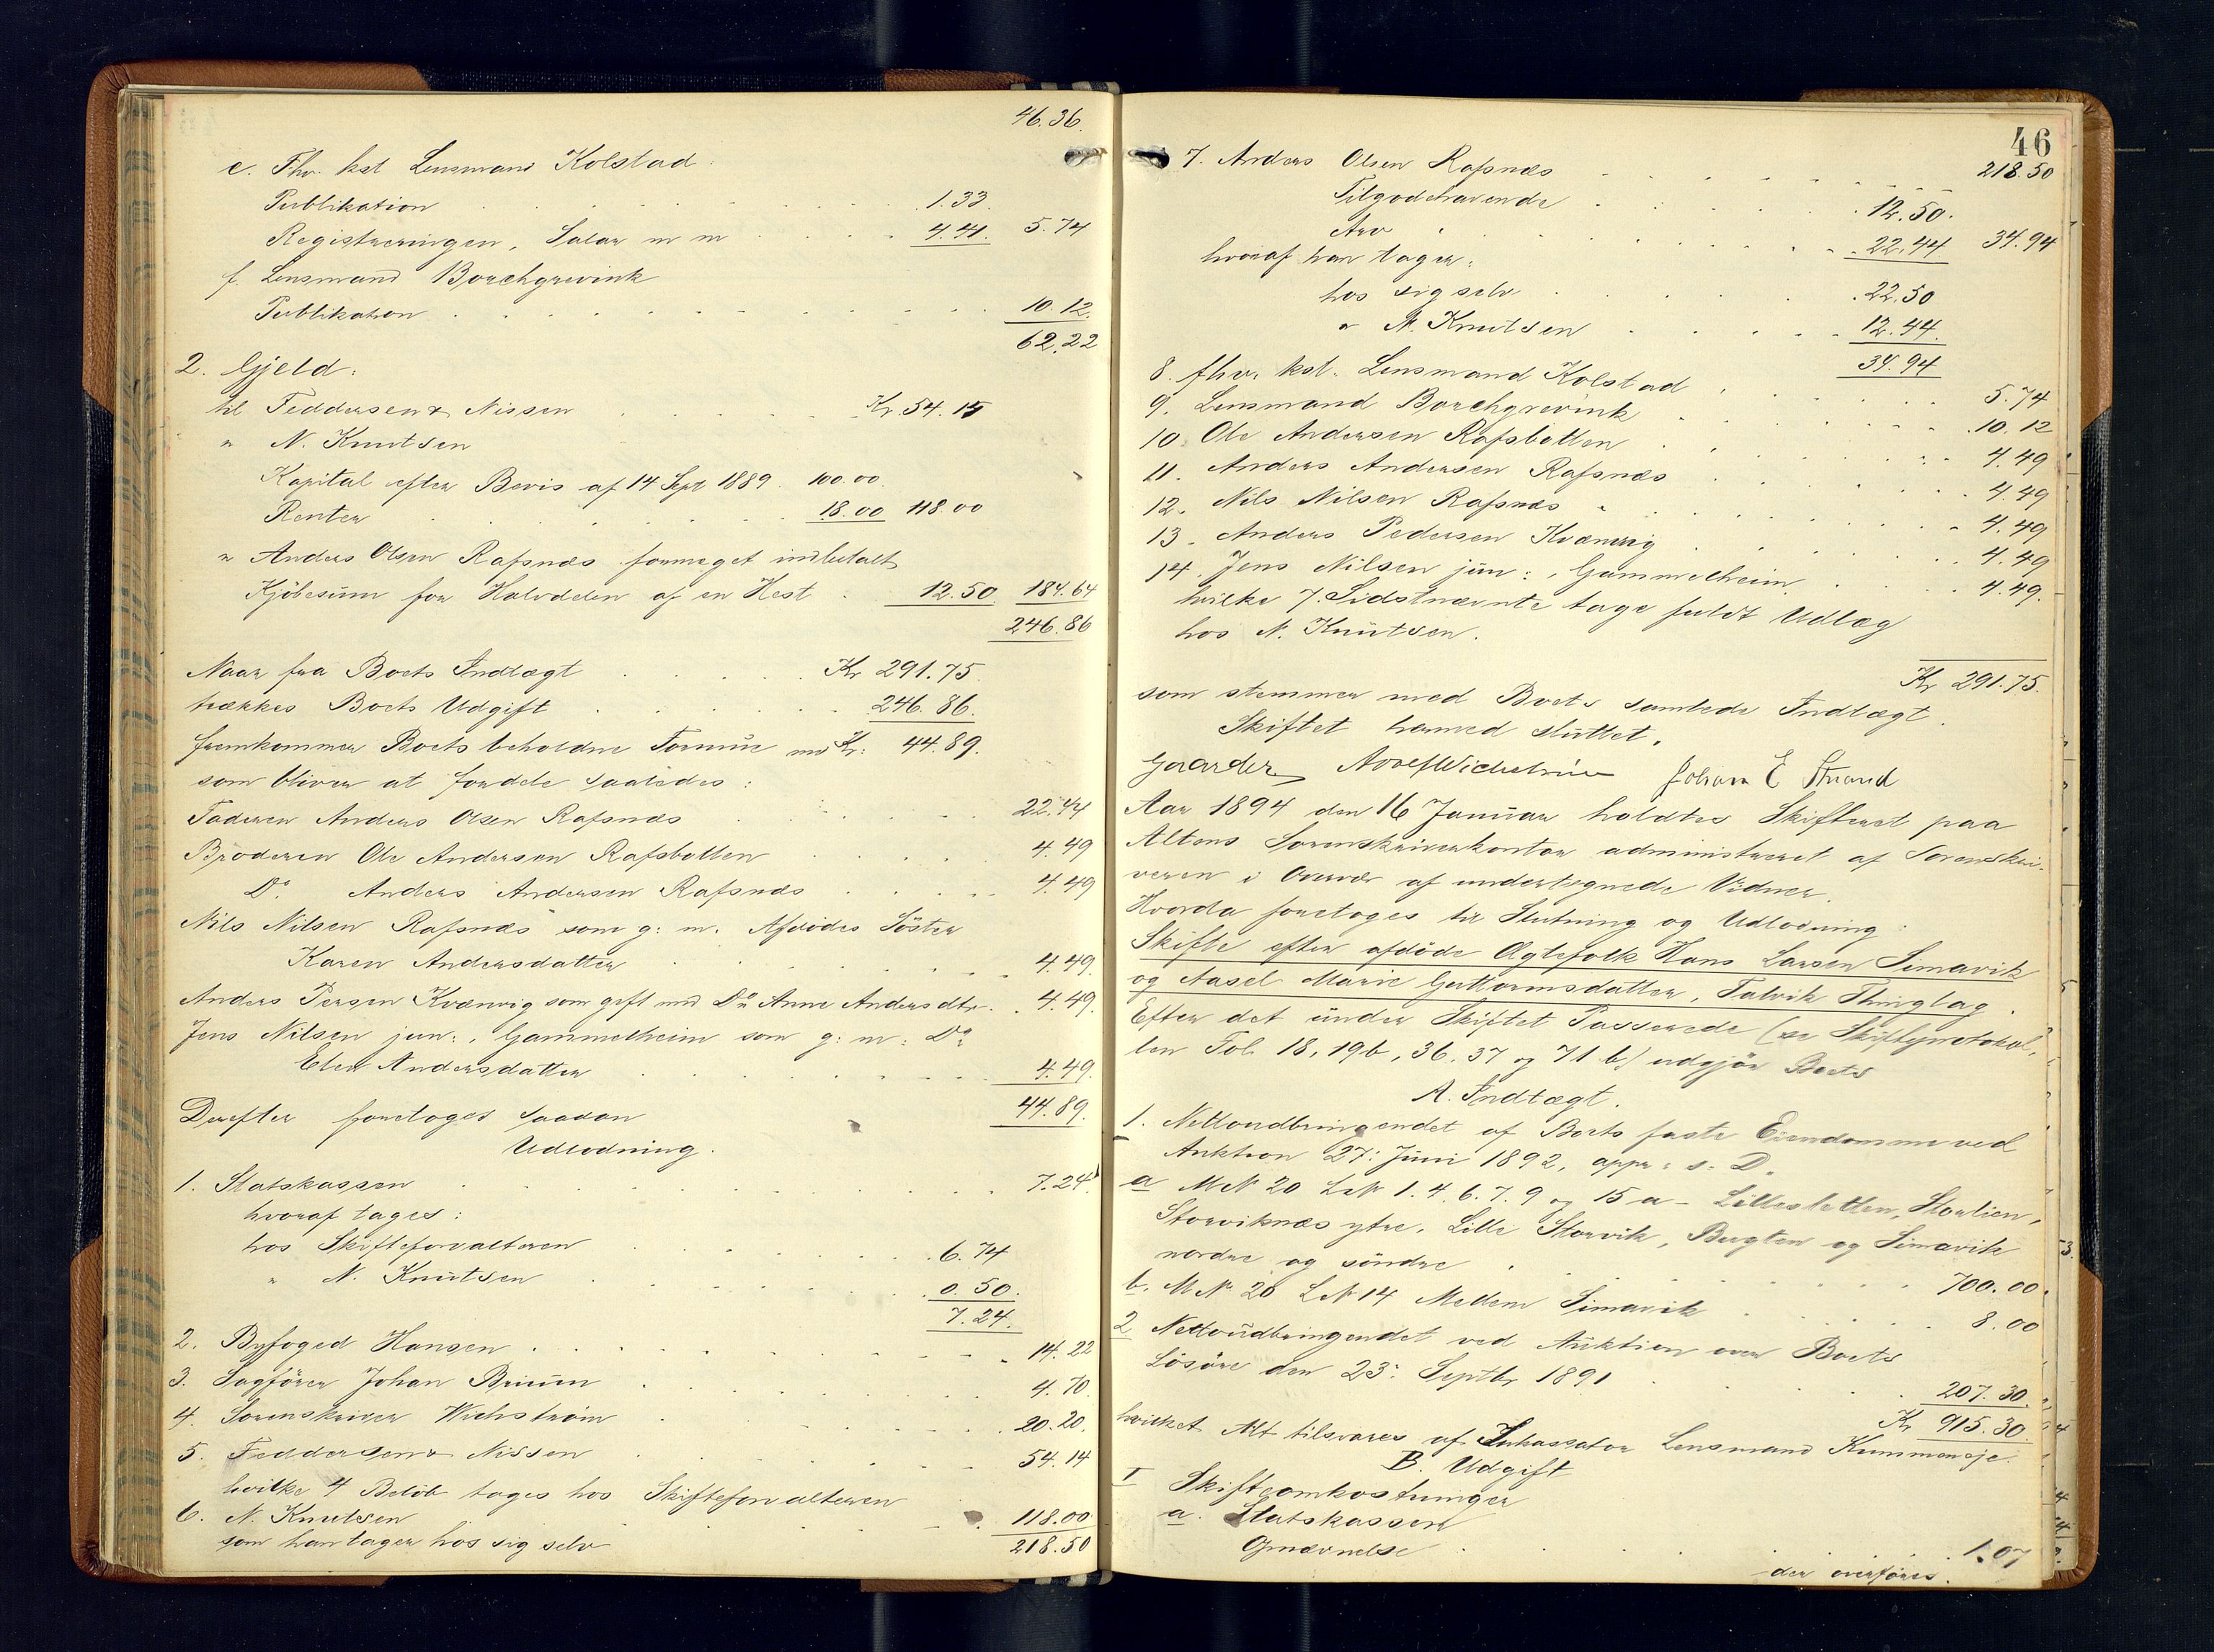 46.36.
e. Fhv. kst Lensmand Kolstad:
Publikation . . . 1.33.
Registreringen, Salær m m . . . 4.41. 5.74
f. Lensmand Borchgrevink
Publikation . . . 10.12.
62.22
2. Gjeld:
til Feddersen & Nissen . . . Kr. 54.14
" N. Knutsen
Kapital efter Bevis af 14 Sept 1889. 100.00.
Renter . . . 18.00 118.00
" Anders Olsen Rafsnæs formeget indbetalt
Kjöbesum for Halvdelen af en Hest . 12.50 184.64
246.86
Naar fra Boets Indtægt . . . Kr 291.75.
trækkes Boets Udgift . . . 246.86.
fremkommer Boets beholdne Formue med Kr: 44.89.
som bliver at fordele saaledes:
Faderen Anders Olsen Rafsnæs . . . 22.44
Broderen Ole Andersen Rafsbotten . . . 4.49
Do. Anders Andersen Rafsnæs . . . 4.49
Nils Nilsen Rafsnæs som g: m. Afdödes Söster
Karen Andersdatter . . . 4.49.
Anders Persen Kvænvig som gift med Do Anne Andersdtr. . 4.49.
Jens Nilsen jun:, Gammelheim som g: m: Do
Elen Andersdatter . . . 4.49.
44.89.
Derefter foretoges saadan
Udlodning.
1. Statskassen . . . 7.24
hvoraf tages:
hos Skifteforvalteren . . . 6.74
" N. Knutsen . . . 0.50.
7.24.
2. Byfoged Hansen . . . 14.22
3. Sagförer Johan Bruun . . . 4.70.
4. Sorenskriver Wichström . . . 20.20.
5. Feddersen & Nissen . . . 54.14
hvilke 4 Belöb tages hos Skifteforvalteren
6. N. Knutsen . . . 118.00
som han tager hos sig selv
218.50
46
218.50
7. Anders Olsen Rafsnæs . . .
Tilgodehavende . . . 12.50.
Arv . . . 22.44 34.94
hvoraf han tager:
hos sig selv . . . 22.50
" N. Knutsen . . . 12.44.
34.94
8. fhv. kst. Lensmand Kolstad . . . 5.74
9. Lensmand Borchgrevink . . . 10.12
10. Ole Andersen Rafsbotten . . . 4.49
11. Anders Andersen Rafsnæs . . . 4.49
12. Nils Nilsen Rafsnæs . . . 4.49
13. Anders Pedersen Kvænvig . . . 4.49
14. Jens Nilsen jun:, Gammelheim . . . 4.49.
hvilke 7. Sidstnævnte tage fuldt Udlæg
hos N. Knutsen.
Kr 291.75.
som stemmer med Boets samlede Indtægt.
Skiftet hermed sluttet.
Gaarder Adolf Wichström Johan E Strand
Aar 1894 den 16 Januar holdtes Skifteret paa
Altens Sorenskriverkontor administreret af Sorenskri-
veren i Overvær af undertegnede Vidner.
Hvorda foretoges til Slutning og Udlodning:
Skifte efter afdöde Ægtefolk Hans Larsen Simavik
og Aasel Marie Guttormsdatter, Talvik Thinglag.
Efter det under Skiftet Passerede (se Skifteprotokol-
len Fol. 18, 19b, 36. 37 og 71 b) udgjör Boets
A. Indtægt.
1. Nettoudbringendet af Boets faste Eiendomme ved
Auktion 27: Juni 1892, appr: s. D.
a M No 20 L No 1. 4. 6. 7. 9 og 15 a - Lillesletten, Storlien,
Storviknæs ytre, Lille Storvik, Bugten og Simavik
nordre og söndre . . . 700.00.
b. M No 20 L No 14 Mellem Simavik . . . 8.00
2 Nettoudbringendet ved Auktion over Boets
Lösöre den 23: Septbr 1891 . . . 207.30.
Kr 915.30
hvilket Alt tilsvares af Inkassator Lensmand Kummeneje.
B. Udgift
I Skifteomkostninger
a. Statskassen
Opnævnelse . . . 1.07
der overföres.